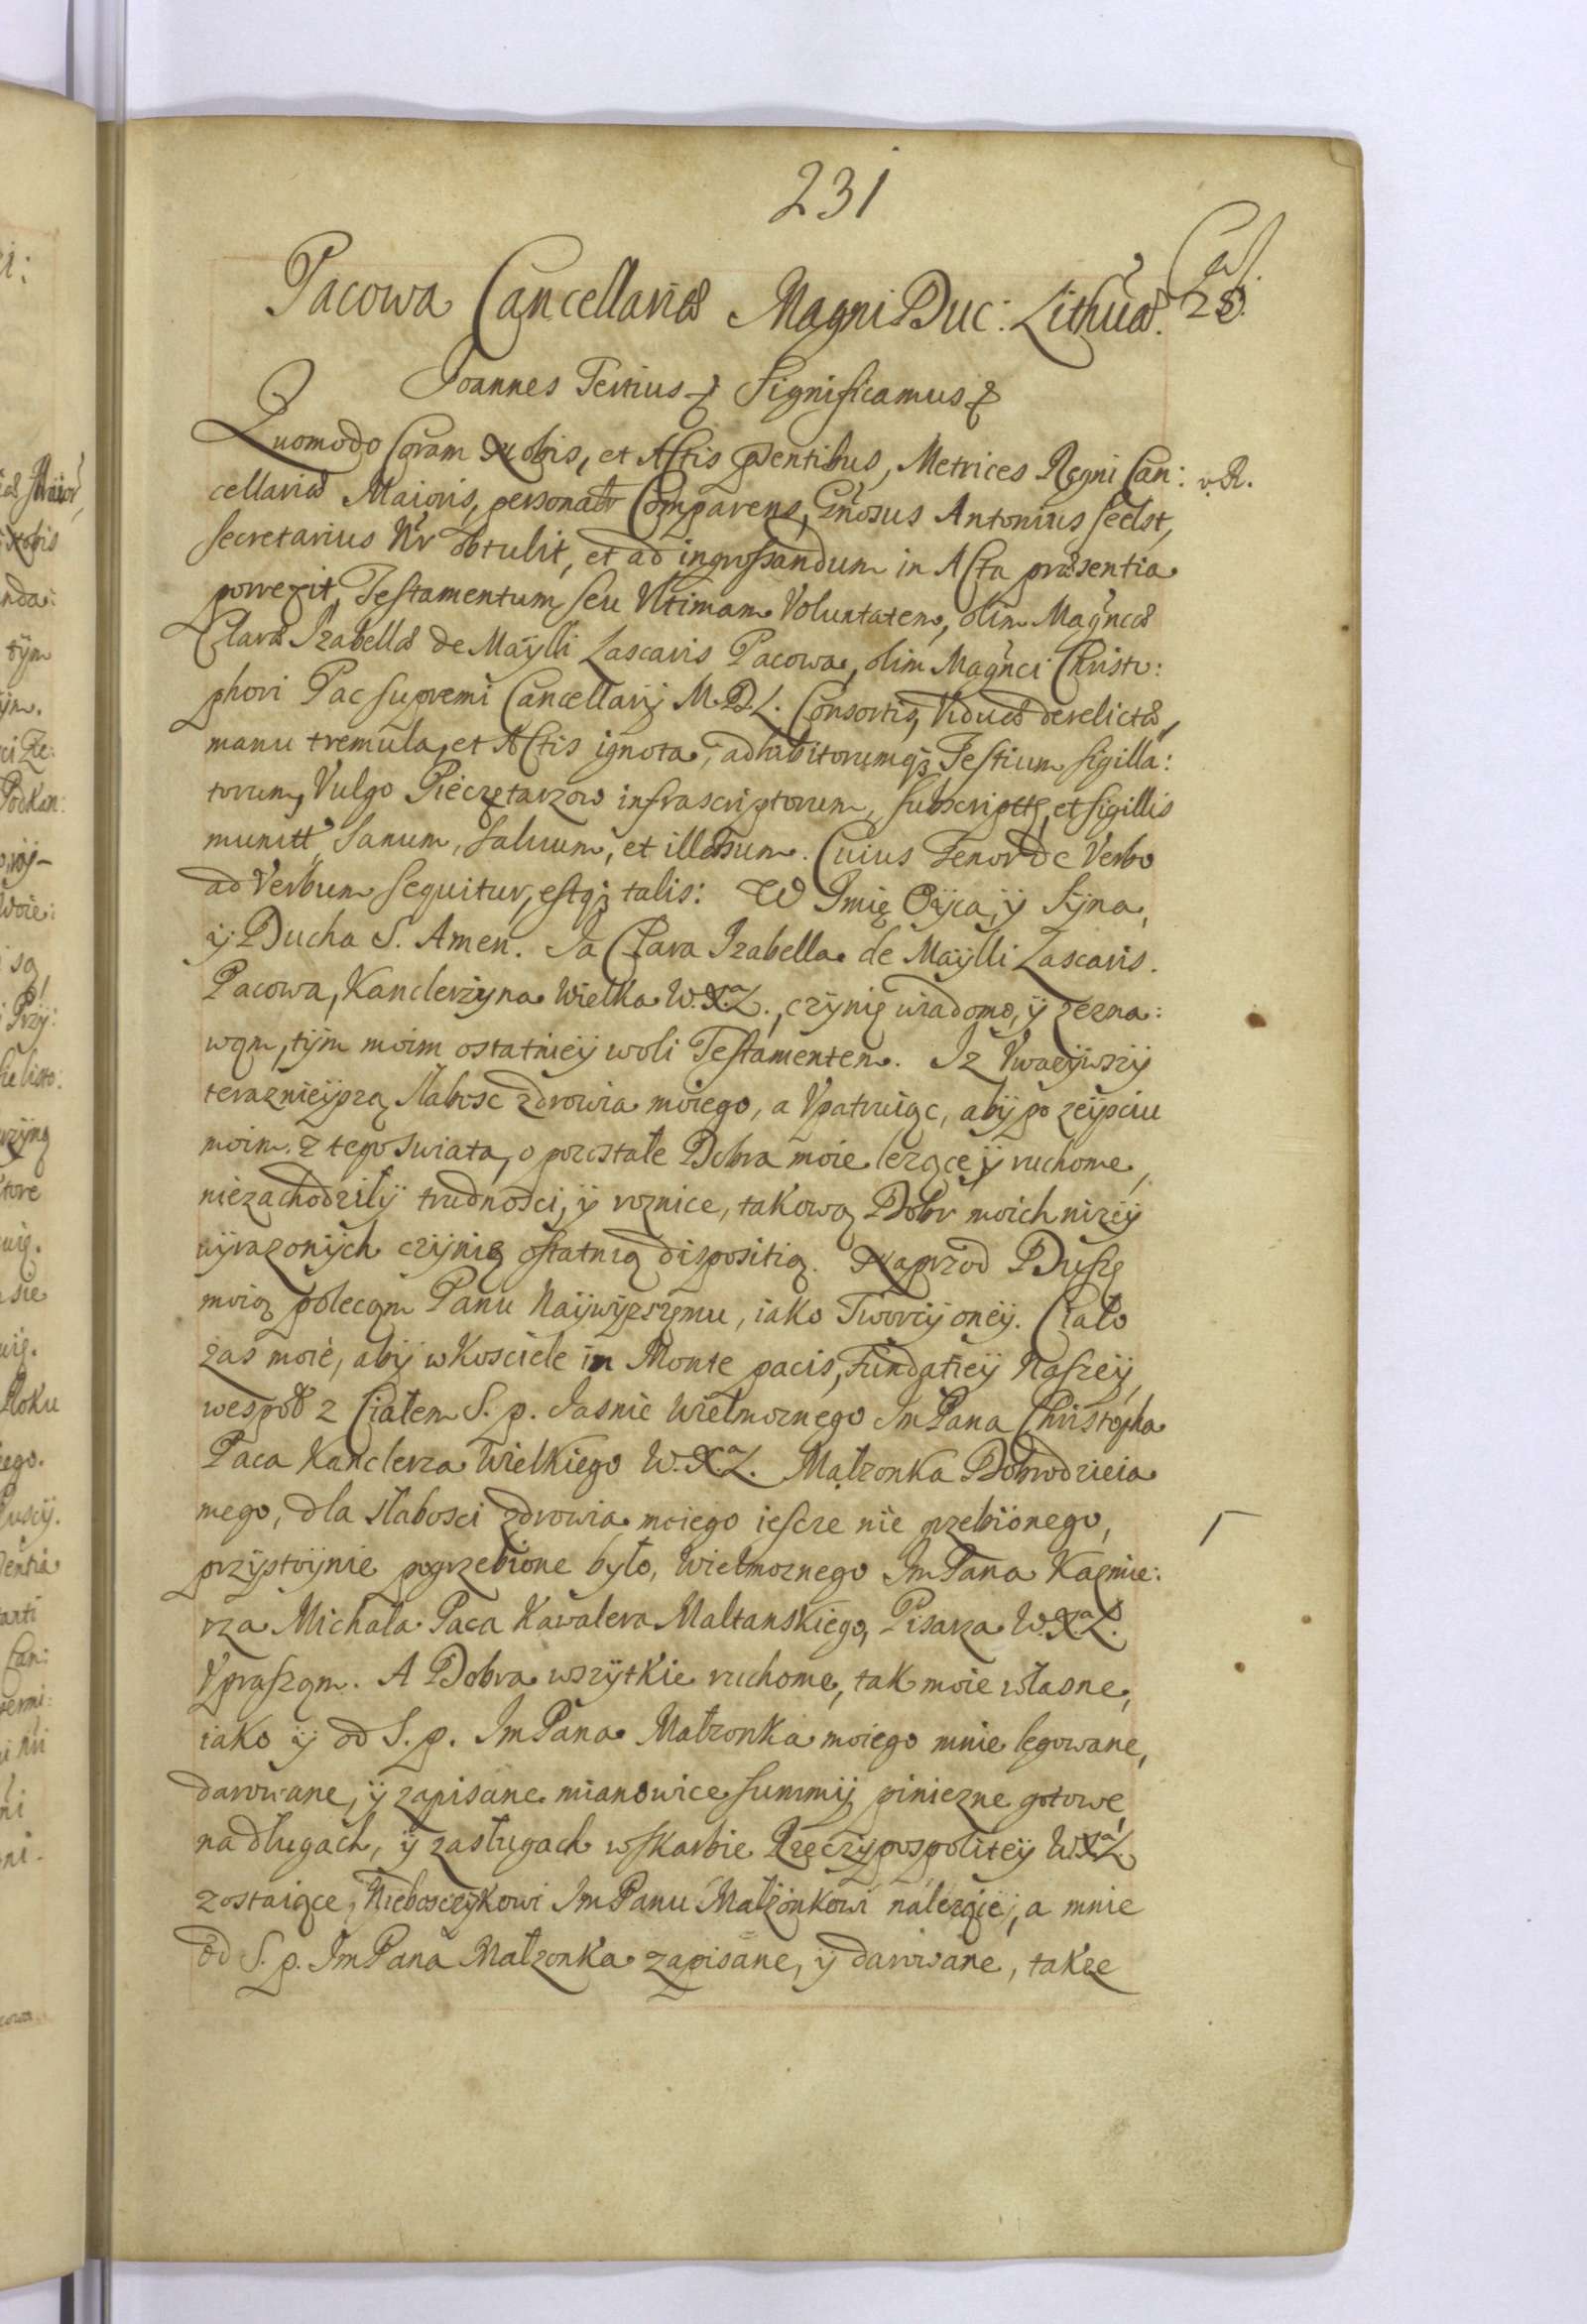 231
Pacowa Cancellariæ Magni Duc: Lithuæ.
Cas.
28.
Joannes Tertius Significamus
Quomodo Coram Nobis, et Actis pñtibus, Metrices Regni Can:
v. R.
cellariæ Maioris, personalr Comparens, Gñosus Antonius Seelst,
secretarius Nr obtulit, et ad ingrossandum in Acta præsentia
porrexit, Testamentum seu Vltimam Voluntatem, olim Magñcæ
Claræ Izabellæ de Maÿlli Lascaris Pacowa, olim Magñci Christo:
phori Pac supremi Cancellarij M.D.L. Consortis, Viduæ derelictæ,
manu tremula, et Actis ignota, adhibitorumqȝ Testium sigilla:
torum, Vulgo Pieczętarzow infrascriptorum, subscriptt, et sigillis
munitt Sanum, saluum, et illæsum. Cuius Tenor de Verbo
ad Verbum sequitur, estqȝ talis: W Imię Oÿca, ÿ Sÿna,
ÿ Ducha S. Amen. Ja Clara Izabella de Maÿlli Lascaris.
Pacowa, Kanclerzÿna Wielka W.X.a L., czÿnię wiadomo, ÿ zezna:
wąm, tÿm moim ostatnieÿ woli Testamentem. Iz Vwazÿwszÿ
teraznieÿszą słabosc zdrowia moiego, a Vpatruiąc, abÿ po zeÿsciu
moim z tego swiata, o pozostałe Dobra moie lezące ÿ ruchome,
niezachodziłÿ trudnosci, ÿ roznice, takową Dobr moich nizeÿ
wÿrazonÿch czÿnię ostatnią dispositią. Naprzod Duszę
moią polecąm Panu Naÿwÿzszemu, iako Tworcÿ oneÿ. Ciało
zas moie, abÿ w Kosciele in Monte pacis, Fundatieÿ Naszeÿ,
wespoł z Ciałem S. p. Jasnie Wielmoznego Jm Pana Christopha
Paca Kanclerza Wielkiego W.X.a L. Małzonka Dobrodzieia
mego, dla słabosci zdrowia moiego iescze nie grzebionego,
przÿstoÿnie pogrzebione było, Wielmoznego Jm Pana Kazmie:
rza Michała Paca Kawalera Maltanskiego, Pisarza W.X.a L.
Vprasząm. A Dobra wszÿtkie ruchome, tak moie własne,
iako ÿ od S. p. Jm Pana Małzonka moiego mnie legowane,
darowane, ÿ zapisane mianowice summÿ piniezne gotowe,
na długach, ÿ zasługach w skarbie Rzeczÿpospoliteÿ W.X.a L.
zostaiące, Nieboscczÿkowi Jm Panu Małzonkowi nalezącie, a mnie
od S. p. Jm Pana Małzonka zapisane, ÿ darowane, takze